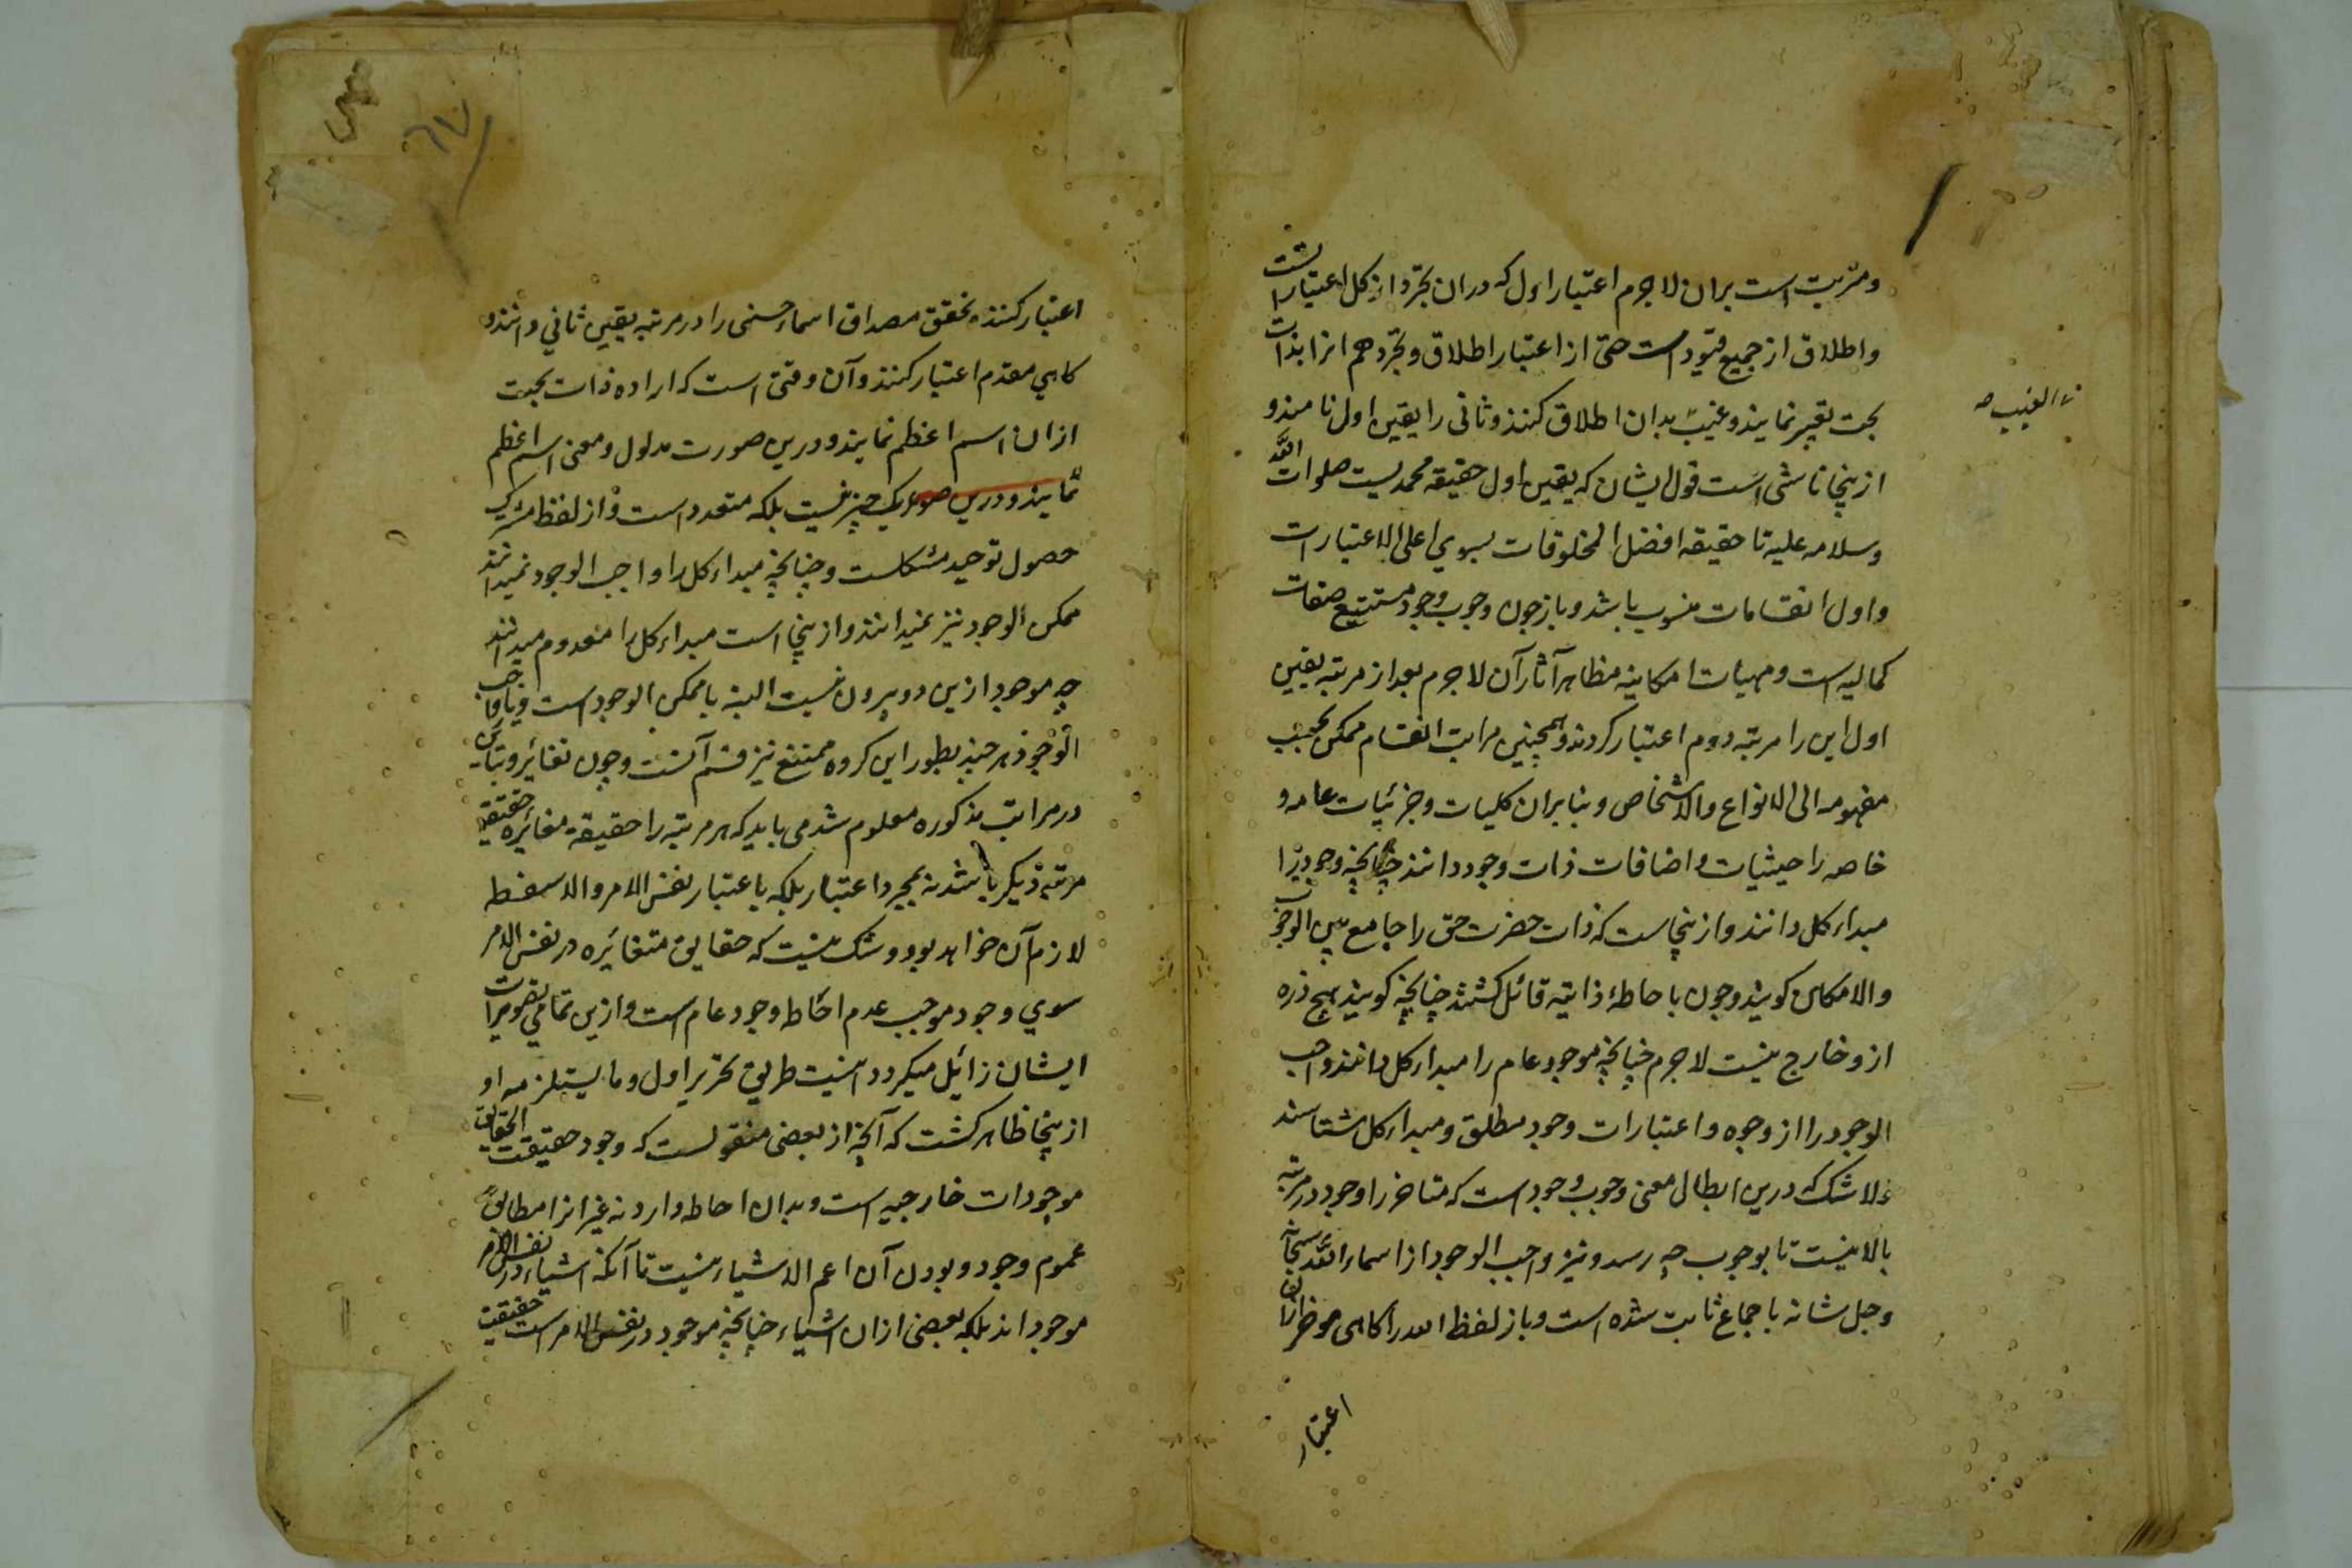 ومترتب است بران لاجرم اعتبار اول که دران تجرد از کل اعتبارات است
واطلاق از جمیع قیود است حتی از اعتبار اطلاق وتجرد هم انرا بذات
بحت تعبیر نمایند وغیب بدان اطلاق کنند وثانی را تعین اول نامند و
ازینجا ناشی است قول ایشان که تعین اول حقیقه محمدیست صلوات الله
وسلامه علیه تا حقیقه افضل المخلوقات بسوی اعلی الاعتبارات
واول انقسامات منسوب باشد وباز چون وجوب وجود مستتبع صفات
کمالیه است ومهیات امکانیه مظاهر آثار آن لاجرم بعد از مرتبه تعین
اول این را مرتبه دوم اعتبار کردند وهمچنین مراتب انقسام ممکن بحسب
مفهومه الی الانواع والاشخاص وبنابران کلیات وجزئیات عامه و
خاصه را حیثیات واضافات ذات وجود دانند چنانچه وجود را
مبداء کل دانند وازینجاست که ذات حضرت حق را جامع بین الوجوب
والامکان کویند وچون باحاطهٔ ذاتیه قائل کشتند چنانچه کویند هیچ ذره
ازو خارج نیست لاجرم چنانچه موجود عام را مبداء کل دانند واجب
الوجود را از وجوه واعتبارات وجود مطلق ومبداء کل شناسند
ولا شک که درین ابطال معنی وجوب وجود است که متاخر را وجود در مرتبه
بالا نیست تا بوجوب چه رسد ونیز واجب الوجود از اسماء الله سبحانه
وجل شانه باجماع ثابت شده است وباز لفظ الله را کاهی موخر ازان
اعتبار
الغیب صه
٦١٧
اعتبار کنند وتحقق مصداق اسماء حسنی را در مرتبه تعین ثانی دانند و
کاهی مقدم اعتبار کنند وآن وقتی است که اراده ذات بحت
ازان اسم اعظم نمایند ودرین صورت مدلول ومعنی اسم اعظم
نمایند ودرین صورت یک چیز نیست بلکه متعدد است واز لفظ مشترک
حصول توحید مشکلست وچنانچه مبداء کل را واجب الوجود نمیدانند
ممکن الوجود نیز نمیدانند وازینجا است مبداء کل را معدوم میدانند
چه موجود ازین دو بیرون نیست البته یا ممکن الوجود است ویا واجب
الوجود هر چند بطور این کروه ممتنع نیز قسم آنست وچون تغائر وتباین
در مراتب مذکوره معلوم شد می باید که هر مرتبه را حقیقة مغائره حقیقه
مرتبه دیکر باشد نه بمجرد اعتبار بلکه باعتبار نفس الامر والا سفسطه
لازم آن خواهد بود وشک نیست که حقایق متغائره در نفس الامر
سوی وجود موجب عدم احاطه وجود عام است وازین تمامی تصورات
ایشان زائیل میکردد اینست طریق تحریر اول وما یستلزمه او
ازینجا ظاهر کشت که آنچه از بعضی منقولست که وجود حقیقت الحقایق
موجودات خارجیه است وبدان احاطه دارد نه غیر انرا مطابق
عموم وجود وبودن آن اعم الاشیاء نیست تا آنکه اشیاء در نفس الامر
موجود اند بلکه بعضی ازان اشیاء چنانچه موجود در نفس الامر است حقیقت